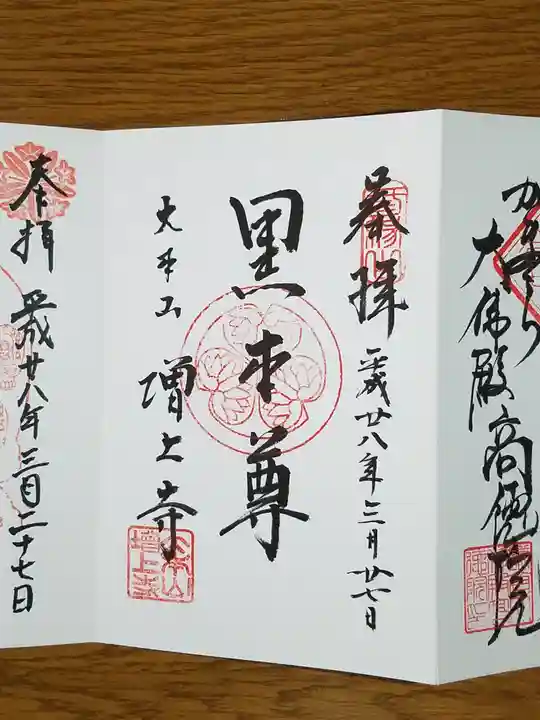 大佛殿高德院
奉拝
平成廿八年三月廿七日
黒本尊
大本山
増上寺
奉拝
平成廿八年三月二十七日